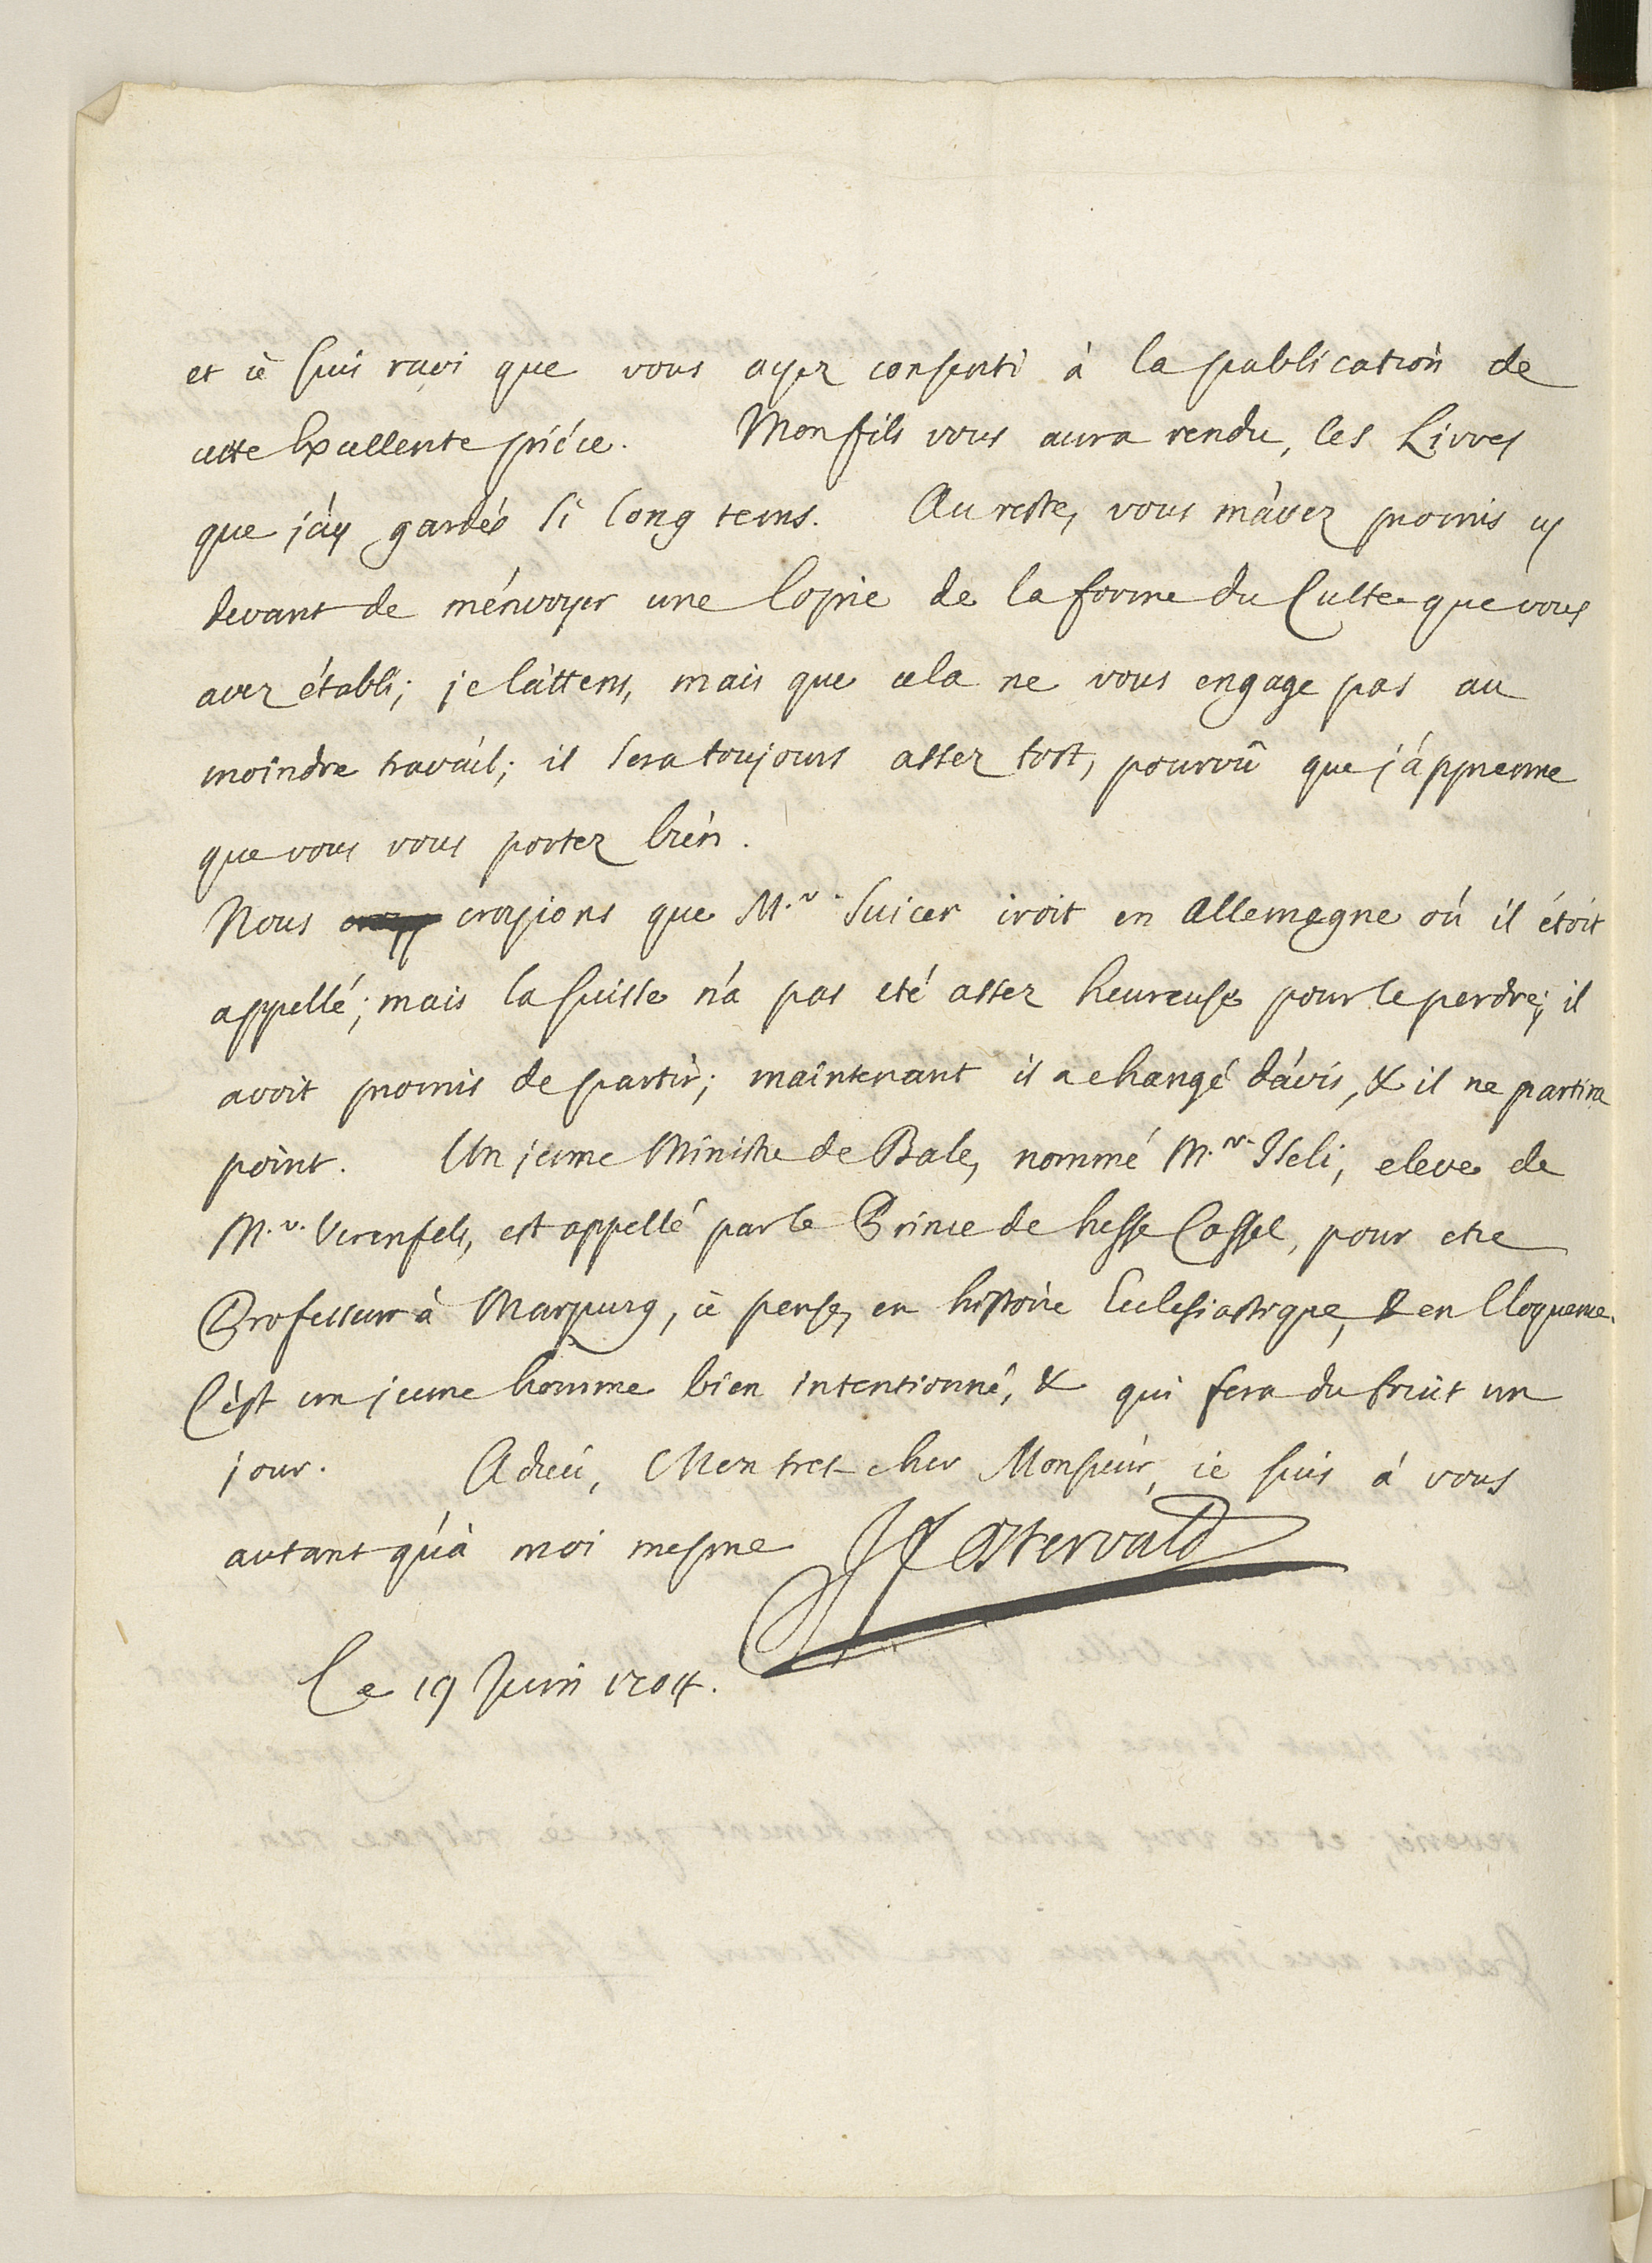 et ie suis ravi que vous ayez consenti à la publication de
cette Excellente piéce. Mon fils vous aura rendu, les Livres
que j'ay gardés si long tems. Au reste, vous m'avez promis cy
devant de m'énvoyer une Copie de la forme du Culte que vous
avez établi; je l'attens, mais que cela ne vous engage pas au
moindre travail; il sera toujours assez tost, pourvû que j'apprenne
que vous vous portez bien.
Nous croyions que M.r Suicer iroit en Allemagne où il étoit
appellé; mais la Suisse n'a pas eté assez heureuse pour le perdre; il
avoit promis de partir; maintenant il a changé d'avis, & il ne partira
point. Un jeune Ministre de Bale, nommé M.r Iseli, eleve de
M.r Verenfels, est appellé par le Prince de hesse Cassel, pour etre
Professeur à Marpurg, ie pense, en histoire Ecclesiastique, & en Eloquence.
C'est un jeune homme bien intentionné, & qui fera du fruit un
jour. Adieu, Mon tres-cher Monsieur, ie suis à vous
autant qu'à moi mesme JF Ostervald
Le 19 Juin 1704.